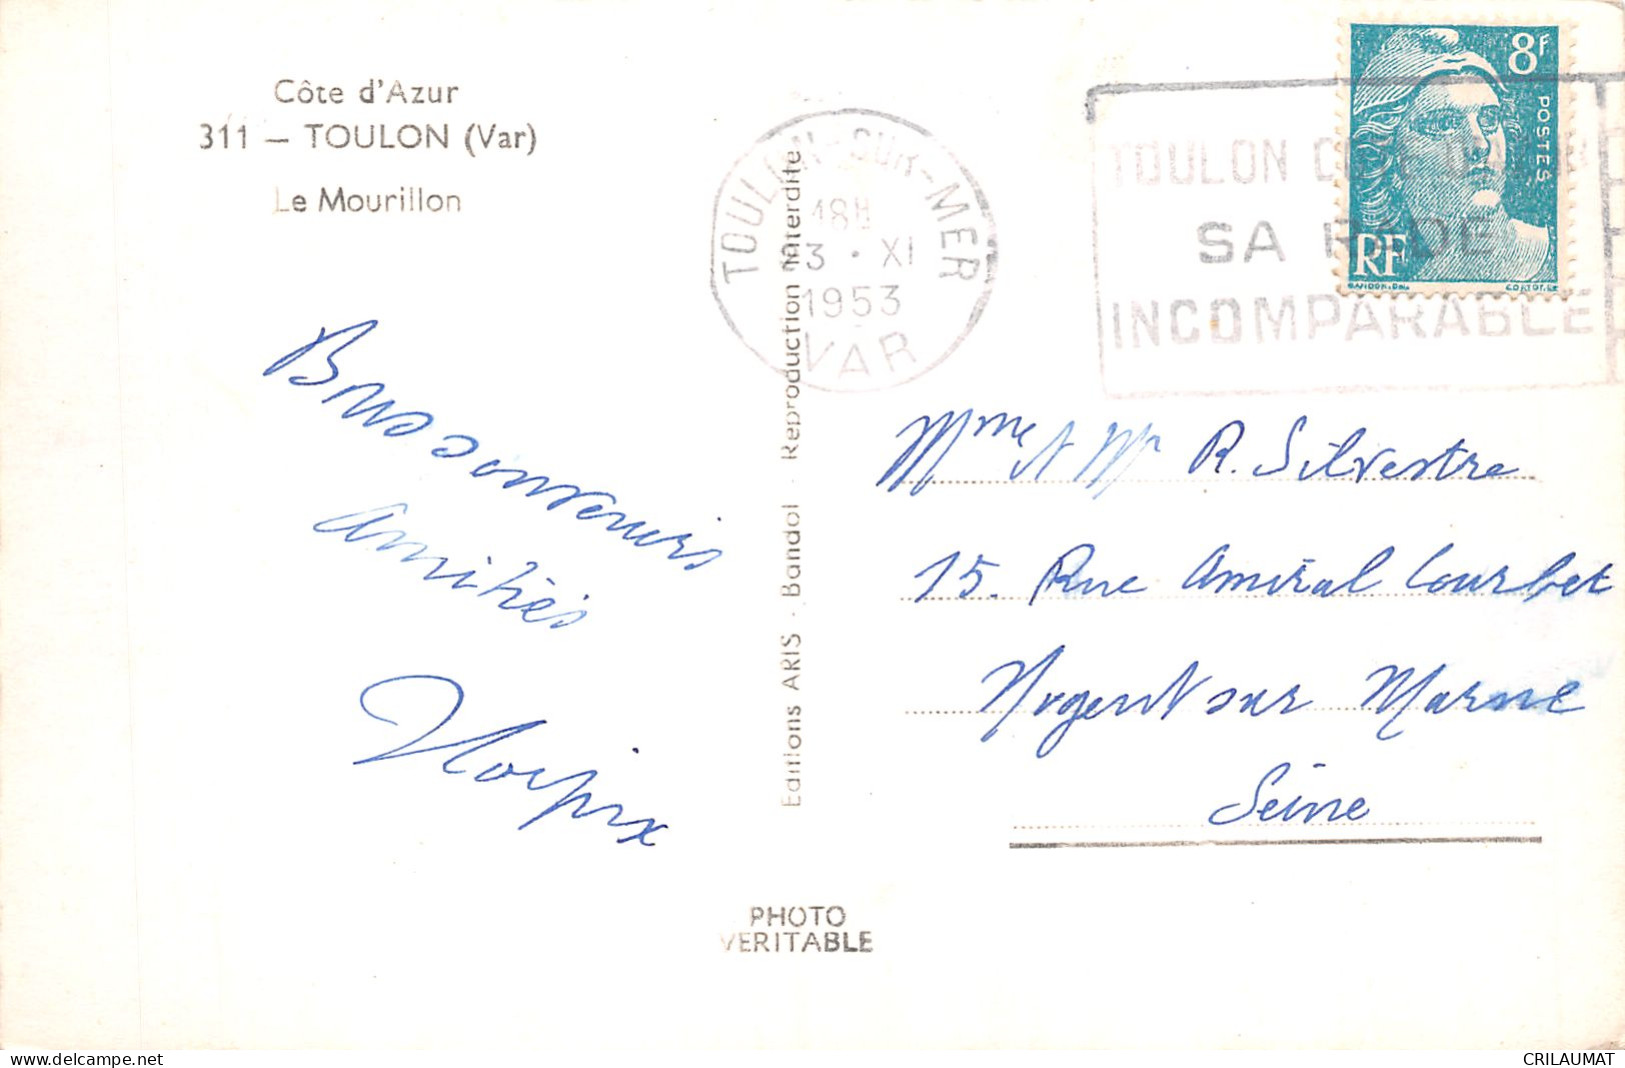 Côte d'Azur
311 — TOULON (Var)
Le Mourillon
TOULON-SUR-MER
18H
3 · XI
1953
VAR
TOULON
SA RADE
INCOMPARABLE
8F
POSTES
RF
Bons souvenirs
Amitiés
Mme et Mr R. Silvestre
15. Rue Amiral Courbet
Nogent sur Marne
Seine
Editions ARIS - Bandol Reproduction Interdite
PHOTO
VERITABLE
delcampe.net
CRILAUMAT